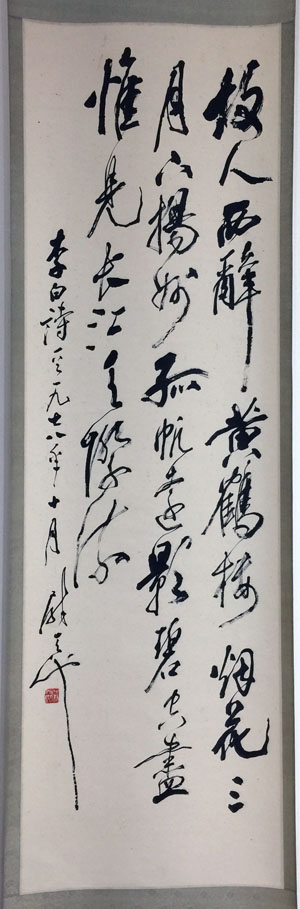 故人西辭黄鶴楼烟花三
月下揚州孤帆遠影碧空盡
惟見长江天際流
李白詩一首一九七八年十月